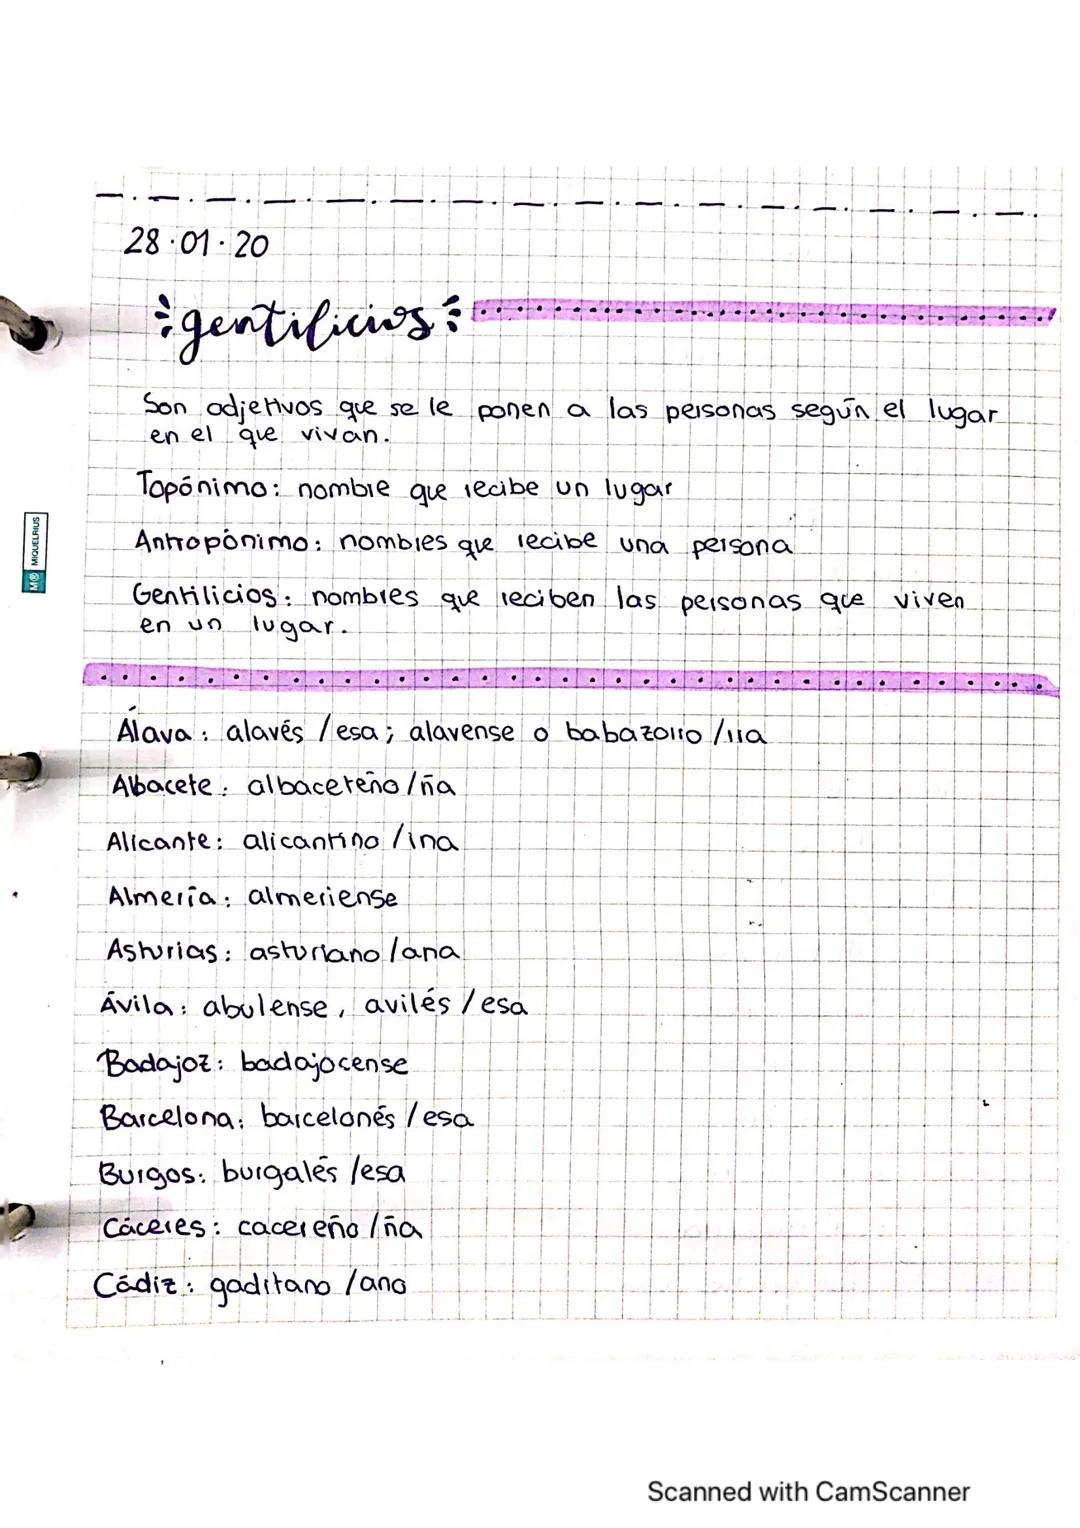 28·01·20
gentilicios
Son adjetivos que se le ponen a las personas según el lugar
en el que vivan.
Topónimo: nombre que recibe un lugar
Antropónimo: nombres que recibe una persona
Gentilicios: nombres que reciben las personas que viven
en un lugar.
M® MIQUELRIUS
Álava: alavés /esa; alavense o babazorro /rra
Albacete: albacereño/ña
Alicante: alicantino /ina
Almería: almeriense
Asturias: asturiano/ana
Ávila: abulense, avilés /esa
Badajoz: badajocense
Barcelona: barcelonés /esa
Burgos: burgalés /esa
Cáceres: cacereño /ña
Cádiz: gaditano /ano
Scanned with CamScanner